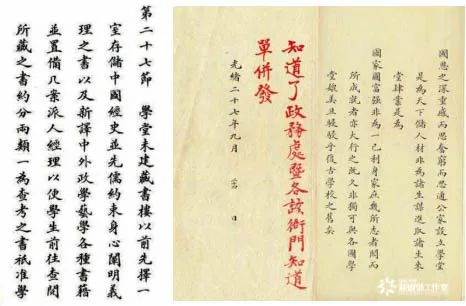 第二十七節　學堂未建藏書樓以前先擇一
室存儲中國經史並先儒約束身心闡明義
理之書以及新譯中外政學藝學各種書籍
並置備几案派人經理以便學生前往查閱
所藏之書約分兩類一為查考之書祇准學
國恩之深重感而思奮窮而思通公家設立學堂
是為天下儲人材非為諸生謀進取諸生來
堂肄業是為
國家圖富强非為一己利身家庶幾所志者闊而
所成就者亦大行之既久非獨可與各國學
堂娩美且駸駸乎復古學校之舊矣
知道了政務處暨各該衙門知道
單併發
光緒二十七年九月　日